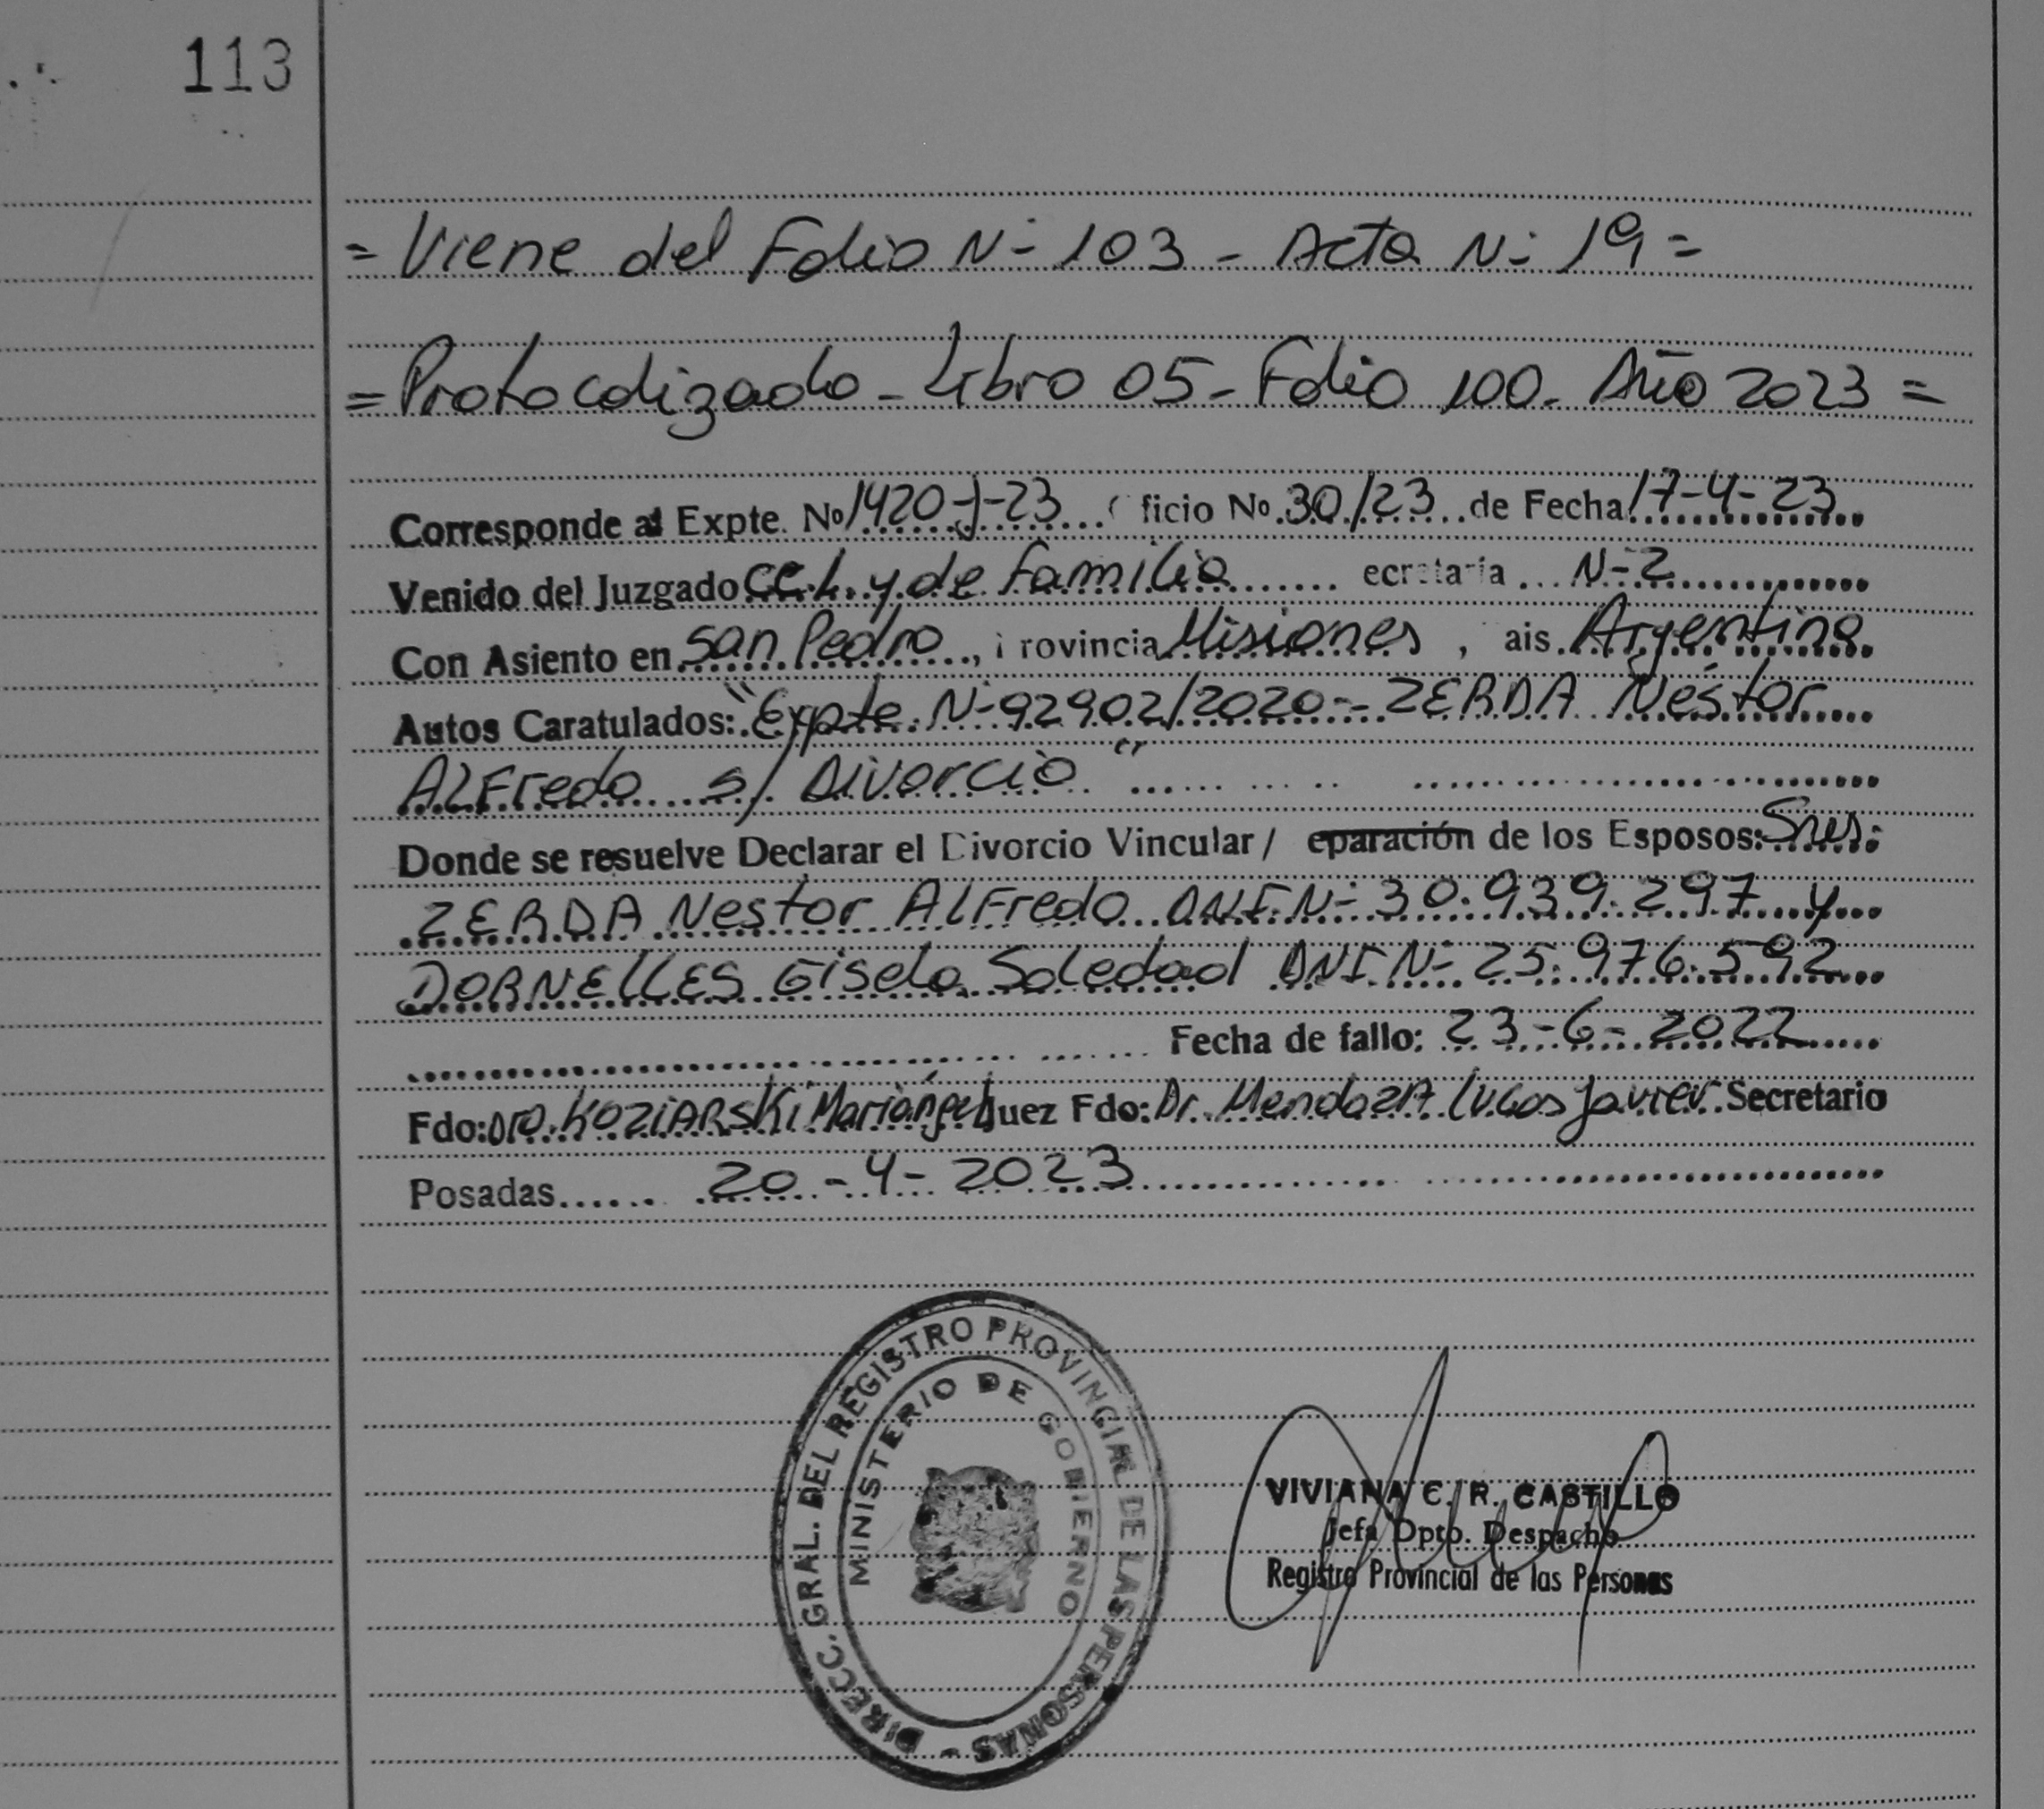 113
= Viene del Folio N- 103 - Acta N- 19 =
= Protocolizado - Libro 05 - Folio 100 - Año 2023 =
Corresponde al Expte. Nº 1420-J-23 ficio No. 30/23 de Fecha 17-4-23
Venido del Juzgado y de Familia ecretaria N-2
Con Asiento en San Pedro, rovincia Misiones, ais Argentina
Autos Caratulados: "Expte N-92902/2020 - ZERDA Nestor
ALFredo s/ Divorcio"
Donde se resuelve Declarar el Divorcio Vincular / eparación de los Esposos: Sres.
ZERDA Nestor ALFredo DNI N- 30.939.297 y
DORNELLES Gisela Soledad DNI N- 25.976.592
Fecha de fallo: 23-6-2022
Fdo: Dra. KOZIARSKi Mariángel Juez Fdo: Dr. Mendoza Lucas Javier Secretario
Posadas 20-4-2023
DIRECC. GRAL. DEL REGISTRO PROVINCIAL DE LAS PERSONAS -
MINISTERIO DE GOBIERNO
VIVIANA C. R. CASTILLO
Jefa Dpto. Despacho
Registro Provincial de las Personas